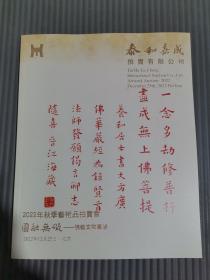 泰和嘉成
拍賣有限公司
TaiHe JiaCheng
International Auction Co.,Ltd.
Autumn Auction 2022
December 25th, 2022 Beijing
一念多劫修善行
盡成無上佛菩提
養和居士書大方廣
佛華嚴經為證賢首
法師發願偈言即志
隨喜 晉江海箴
2022年秋季藝術品拍賣會
圓融無礙——佛教文物專場
2022年12月25日·北京